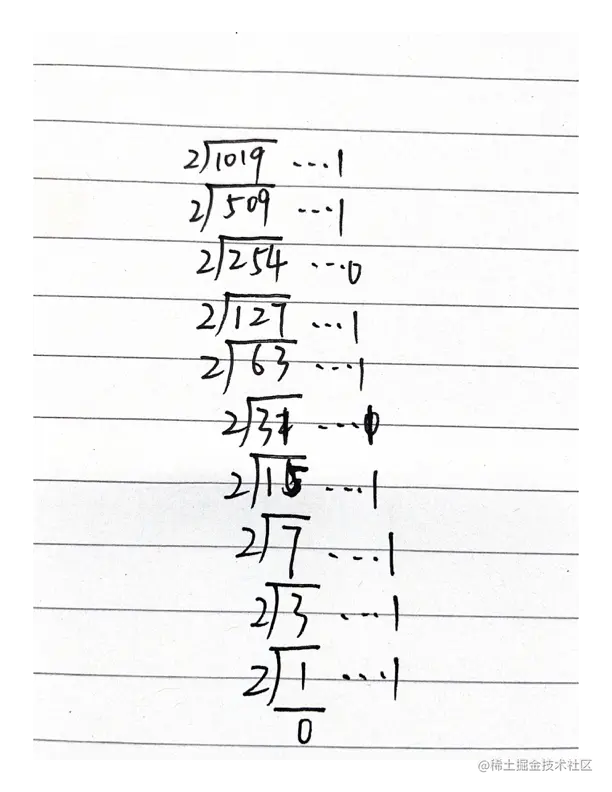 2)1019 ...1
2)509 ...1
2)254 ...0
2)127 ...1
2)63 ...1
2)31 ...1
2)15 ...1
2)7 ...1
2)3 ...1
2)1 ...1
0
@稀土掘金技术社区